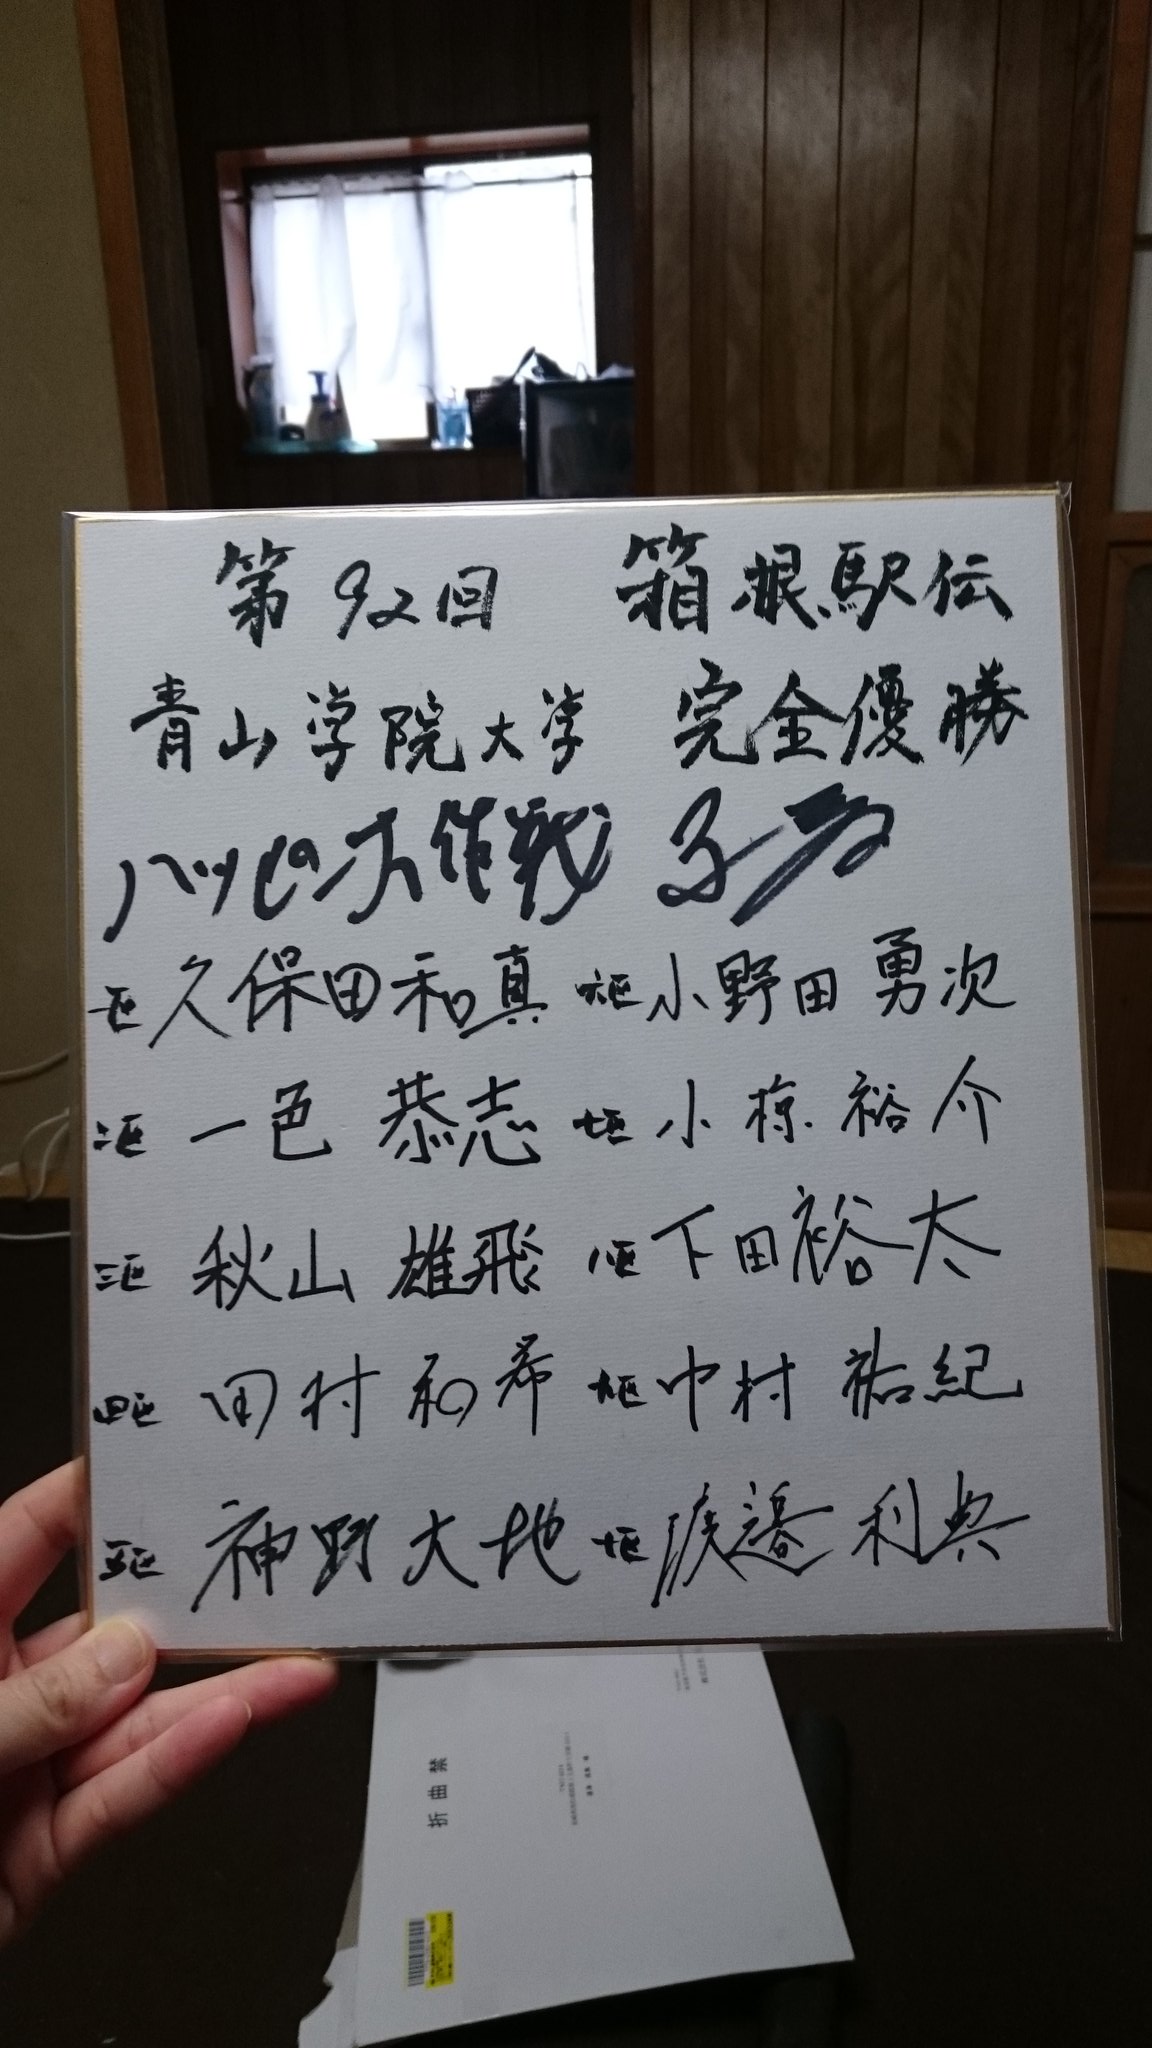 第92回 箱根駅伝
青山学院大学 完全優勝
ハッピー大作戦
一区 久保田和真 六区 小野田勇次
二区 一色恭志 七区 小椋裕介
三区 秋山雄飛 八区 下田裕太
四区 田村和希 九区 中村祐紀
五区 神野大地 十区 渡邉利典
折曲禁